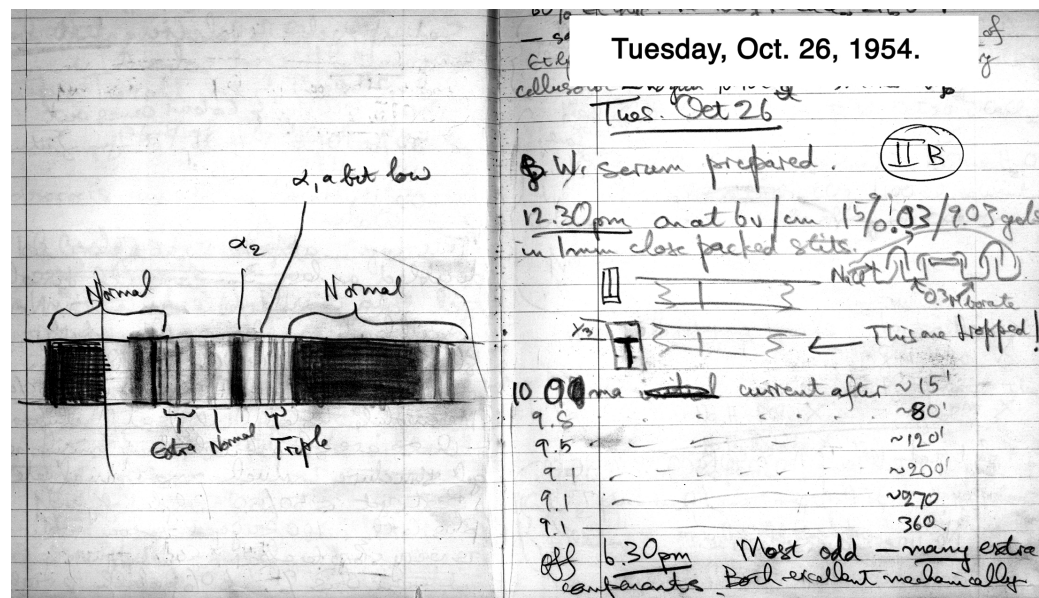 α, a bit low
α2
Normal
Normal
Extra
Normal
Triple
Tuesday, Oct. 26, 1954.
Tues. Oct 26
W. serum prepared.
II B
12.30pm on at 6v/cm 15%/.03/9.03 gels
in 1mm close packed slits.
NaCl
0.3M borate
This one tropped!
T
10.0 ma current after ~15'
9.8 ~80'
9.5 ~120'
9.1 ~200'
9.1 ~270
9.1 360
off 6.30pm Most odd — many extra
components. Both excellent mechanically